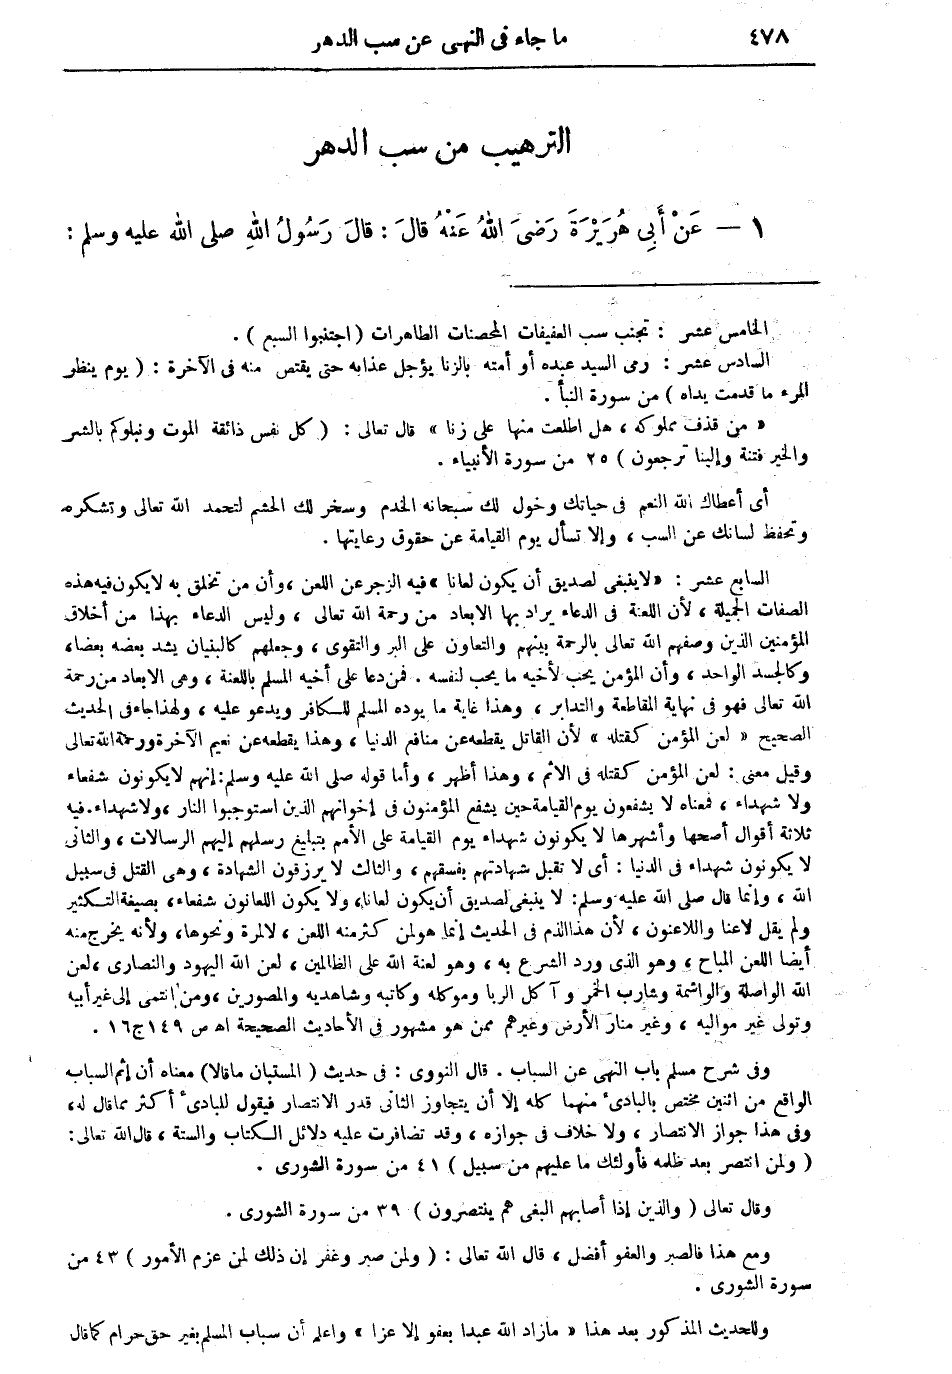 ٤٧٨
ما جاء فى النهى عن سب الدهر
الترهيب من سب الدهر
١ — عَنْ أَبِى هُرَيْرَةَ رَضِىَ اللهُ عَنْهُ قالَ : قالَ رَسُولُ اللهِ صلى الله عليه وسلم :
الخامس عشر : تجنب سب العفيفات المحصنات الطاهرات ( اجتنبوا السبع ) .
السادس عشر : رمى السيد عبده أو أمته بالزنا يؤجل عذابه حتى يقتص منه فى الآخرة : ( يوم ينظر
المرء ما قدمت يداه ) من سورة النبأ .
« من قذف مملوكه ، هل اطلعت منها على زنا » قال تعالى : ( كل نفس ذائقة الموت ونبلوكم بالشر
والخير فتنة وإلينا ترجعون ) ٢٥ من سورة الأنبياء .
أى أعطاك الله النعم فى حياتك وخول لك سبحانه الخدم وسخر لك الحشم لتحمد الله تعالى وتشكره
وتحفظ لسانك عن السب ، وإلا تسأل يوم القيامة عن حقوق رعايتها .
السابع عشر : « لا ينبغى لصديق أن يكون لعانا » فيه الزجر عن اللعن ، وأن من تخلق به لا يكون فيه هذه
الصفات الجميلة ، لأن اللعنة فى الدعاء يراد بها الابعاد من رحمة الله تعالى ، وليس الدعاء بهذا من أخلاق
المؤمنين الذين وصفهم الله تعالى بالرحمة بينهم والتعاون على البر والتقوى ، وجعلهم كالبنيان يشد بعضه بعضا ،
وكالجسد الواحد ، وأن المؤمن يحب لأخيه ما يحب لنفسه . فمن دعا على أخيه المسلم باللعنة ، وهى الابعاد من رحمة
الله تعالى فهو فى نهاية المقاطعة والتدابر ، وهذا غاية ما يوده المسلم للكافر ويدعو عليه ، ولهذا جاء فى الحديث
الصحيح « لعن المؤمن كقتله » لأن القاتل يقطعه عن منافع الدنيا ، وهذا يقطعه عن نعيم الآخرة ورحمة الله تعالى
وقيل معنى : لعن المؤمن كقتله فى الاثم ، وهذا أظهر ، وأما قوله صلى الله عليه وسلم : إنهم لا يكونون شفعاء
ولا شهداء ، فمعناه لا يشفعون يوم القيامة حين يشفع المؤمنون فى إخوانهم الذين استوجبوا النار ، ولا شهداء . فيه
ثلاثة أقوال أصحها وأشهرها لا يكونون شهداء يوم القيامة على الأمم بتبليغ رسلهم إليهم الرسالات ، والثانى
لا يكونون شهداء فى الدنيا : أى لا تقبل شهادتهم بفسقهم ، والثالث لا يرزقون الشهادة ، وهى القتل فى سبيل
الله ، وإنما قال صلى الله عليه وسلم : لا ينبغى لصديق أن يكون لعانا ، ولا يكون اللعانون شفعاء ، بصيغة التكثير
ولم يقل لاعنا واللاعنون ، لأن هذا الذم فى الحديث إنما هو لمن كثر منه اللعن ، لا لمرة ونحوها ، ولأنه يخرج منه
أيضا اللعن المباح ، وهو الذى ورد الشرع به ، وهو لعنة الله على الظالمين ، لعن الله اليهود والنصارى ، لعن
الله الواصلة والواشمة وشارب الخمر و آكل الربا وموكله وكاتبه وشاهديه والمصورين ، ومن انتمى إلى غير أبيه
وتولى غير مواليه ، وغير منار الأرض وغيرهم ممن هو مشهور فى الأحاديث الصحيحة اه ص ١٤٩ ج ١٦ .
وفى شرح مسلم باب النهى عن السباب . قال النووى : فى حديث ( المستبان ماقالا ) معناه أن إثم السباب
الواقع من اثنين مختص بالبادئ منهما كله إلا أن يتجاوز الثانى قدر الانتصار فيقول للبادئ أكثر مما قال له ،
وفى هذا جواز الانتصار ، ولا خلاف فى جوازه ، وقد تضافرت عليه دلائل الكتاب والسنة ، قال الله تعالى :
( ولمن انتصر بعد ظلمه فأولئك ما عليهم من سبيل ) ٤١ من سورة الشورى .
وقال تعالى ( والذين إذا أصابهم البغى هم ينتصرون ) ٣٩ من سورة الشورى .
ومع هذا فالصبر والعفو أفضل ، قال الله تعالى : ( ولمن صبر وغفر إن ذلك لمن عزم الأمور ) ٤٣ من
سورة الشورى .
وللحديث المذكور بعد هذا « مازاد الله عبدا بعفو إلا عزا » واعلم أن سباب المسلم بغير حق حرام كما قال